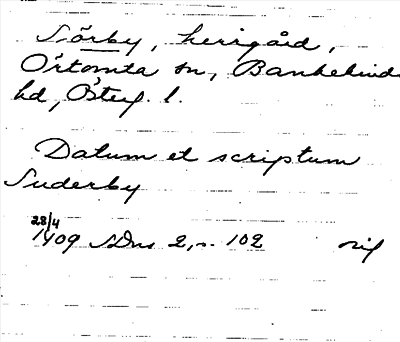 Sörby, herrgård,
Örtomta sn, Bankekinds
hd, Österg. l.
Datum et scriptum
Suderby
28/4
1409 SDns 2, s. 102 orig